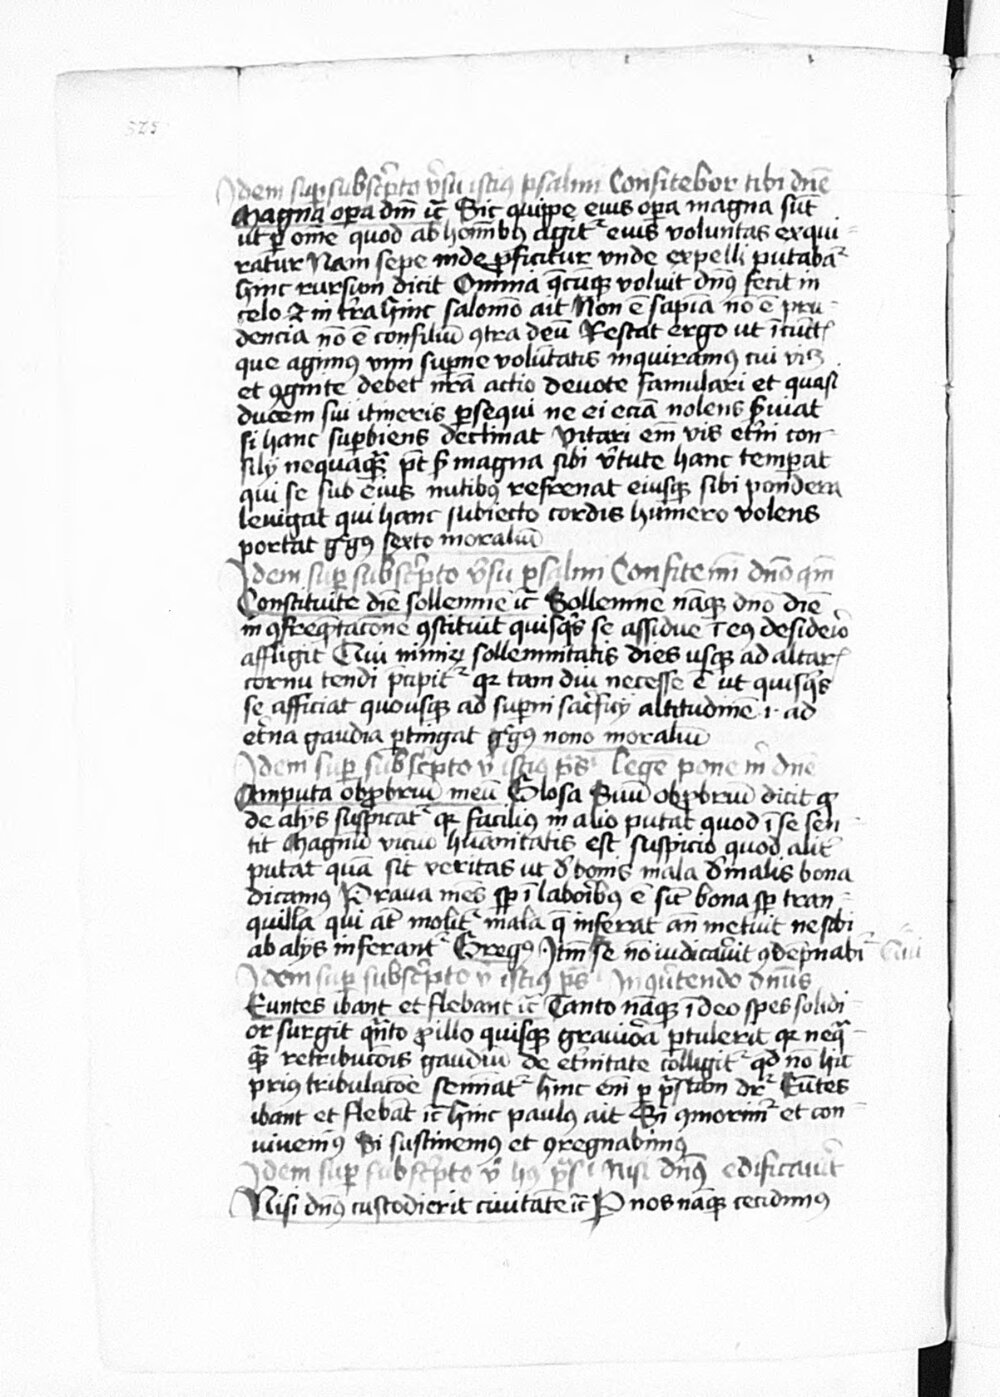 525
Idem sup subscͥpto v̉su istiꝰ psalmi Confitebor tibi dn̄e
Magna opa dn̄i ic̄ Sic quippe eius opa magna sūt
ut ꝑ om̄e quod ab homībꝫ agitᷣ eius voluntas exqui
ratur Nam sepe inde ꝓficitur unde expelli putabāᷣ
hinc rursum dicit Omnia q̄cūqꝫ voluit dn̄s fecit in
celo ⁊ in tr̄a hinc salomō ait Non ē sapīa nō ē pru
dencia nō ē consiliū ꝯtra deū Restat ergo ut ī cūct
que agimꝰ vim supne voluntatis inquiramꝰ cui viꝫ
et ꝯgnite debet nr̄a actio devote famulari et quasi
ducem sui itineris ꝑsequi ne ei eciā nolens ẜuiat
si hanc supbiens declinat Vitari em̄ vis etn̉i con
silij nequaqᷓꝫ pt̄ ẜ magna sibi v̉tute hanc tempat
qui se sub eius nutibꝰ refrenat eiusqꝫ sibi pondera
levigat qui hanc subiecto cordis humero volens
portat gͥgꝰ sexto moraliū
Idem sup subscͥpto v̉su psalmi Confitemī dn̄o qm̄
Constituite diē sollemnē ic̄ Sollemnē nāqꝫ dn̄o diē
in ꝯfreqᷓtacone ꝯstituit quisqͥs se assidue ī eiꝰ desiderio
affligit Cui nimiꝝ sollemnitatis dies usqꝫ ad altar
cornu tendi pͥcipitᷣ qꝛ tam diu necesse ē ut quisqͥs
se afficiat quousqꝫ ad supni sacͥficij altitudinē .i. ad
et̉na gaudia ꝑtingat gͥgꝰ nono moraliū
Idem sup subscͥpto v̉ istiꝰ ps̄ Legē pone m̉ dn̄e
Amputa obꝓbriū meū Glosa Suū obꝓbriū dicit qꝫ
de alijs suspicatᷣ qꝛ faciliꝰ in alio putat quod ī se sen
tit Magnū viciū hūanitatis est suspicio quod alit̉
putat quā sit veritas ut de bonis mala de malis bona
dicamꝰ Prava mēs sꝑ ī laboribꝰ ē sic̄ bona sꝑ tran
quilla qui at̄ molitᷣ mala q̄ inferat an̄ metuit ne sibi
ab alijs inferantᷣ Gregꝰ Itm̄ se nō iudicauit ꝯdēpnabiᷣ
Idem sup subscͥpto v̉ istiꝰ ps̄ In ꝯv̉tendo dn̄us
Euntes ibant et flebant ic̄ Tanto nāqꝫ ī deo spes solidi
or surgit qᷓnto ꝓ illo quisqꝫ graviora ꝑtulerit qꝛ neqᷓ
qᷓꝫ retribucōis gaudiū de et̉nitate colligitᷣ qd̄ nō hic
priꝰ tribulacōe semīatᷣ hinc em̄ ꝑ pͥstam drᷣ Eūtes
ibant et flebāt ic̄ hinc paulꝰ ait Si ꝯmorimᷣ et con
vivemꝰ Si sustinemꝰ et ꝯregnabimꝰ
Idem sup subscͥpto v̉ hꝰ ps̄i Nisi dn̄s edificauit
Nisi dn̄s custodierit civitatē ic̄ Per nos nāqꝫ cecidimꝰ